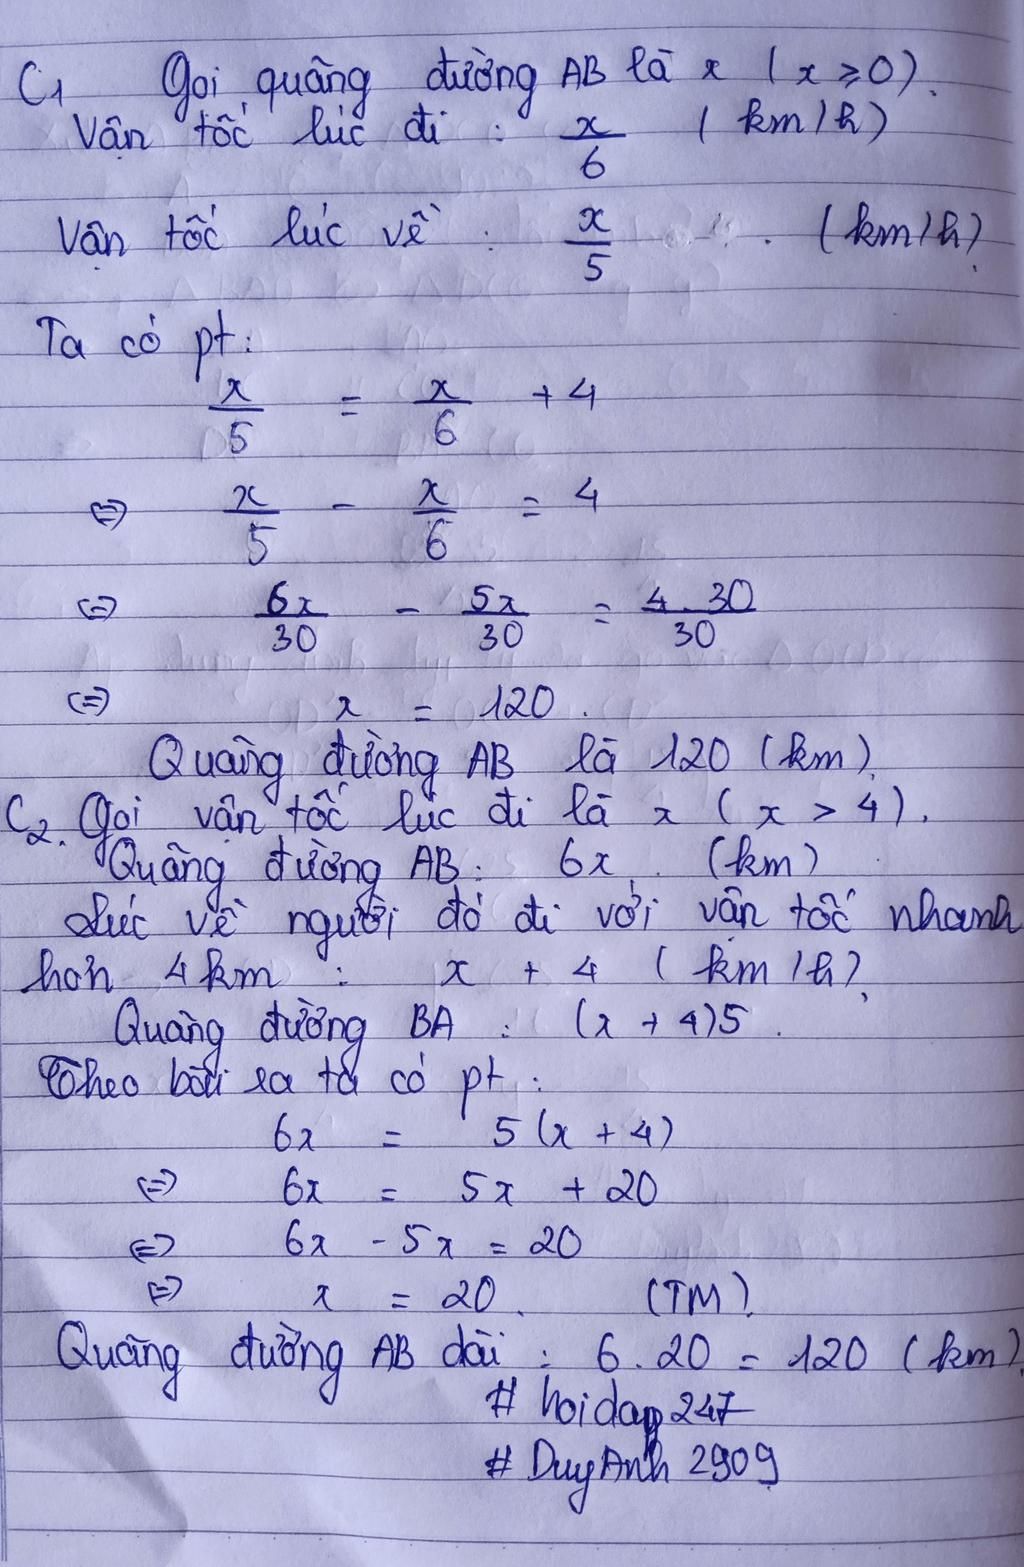 C1 Gọi quãng đường AB là x (x ≥ 0).
Vận tốc lúc đi : x/6 (km/h)
Vận tốc lúc về : x/5 . (km/h)
Ta có pt :
x/5 = x/6 + 4
⇔ x/5 - x/6 = 4
⇔ 6x/30 - 5x/30 = 4.30/30
⇔ x = 120 .
Quãng đường AB là 120 (km)
C2. Gọi vận tốc lúc đi là x ( x > 4).
Quãng đường AB : 6x . (km)
Lúc về người đó đi với vận tốc nhanh
hơn 4km : x + 4 ( km/h)
Quãng đường BA : (x + 4)5 .
Theo bài ra ta có pt :
6x = 5(x + 4)
⇔ 6x = 5x + 20
⇔ 6x - 5x = 20
⇔ x = 20 . (TM)
Quãng đường AB dài : 6.20 = 120 (km)
# hoidap 247
# DuyAnh 2909